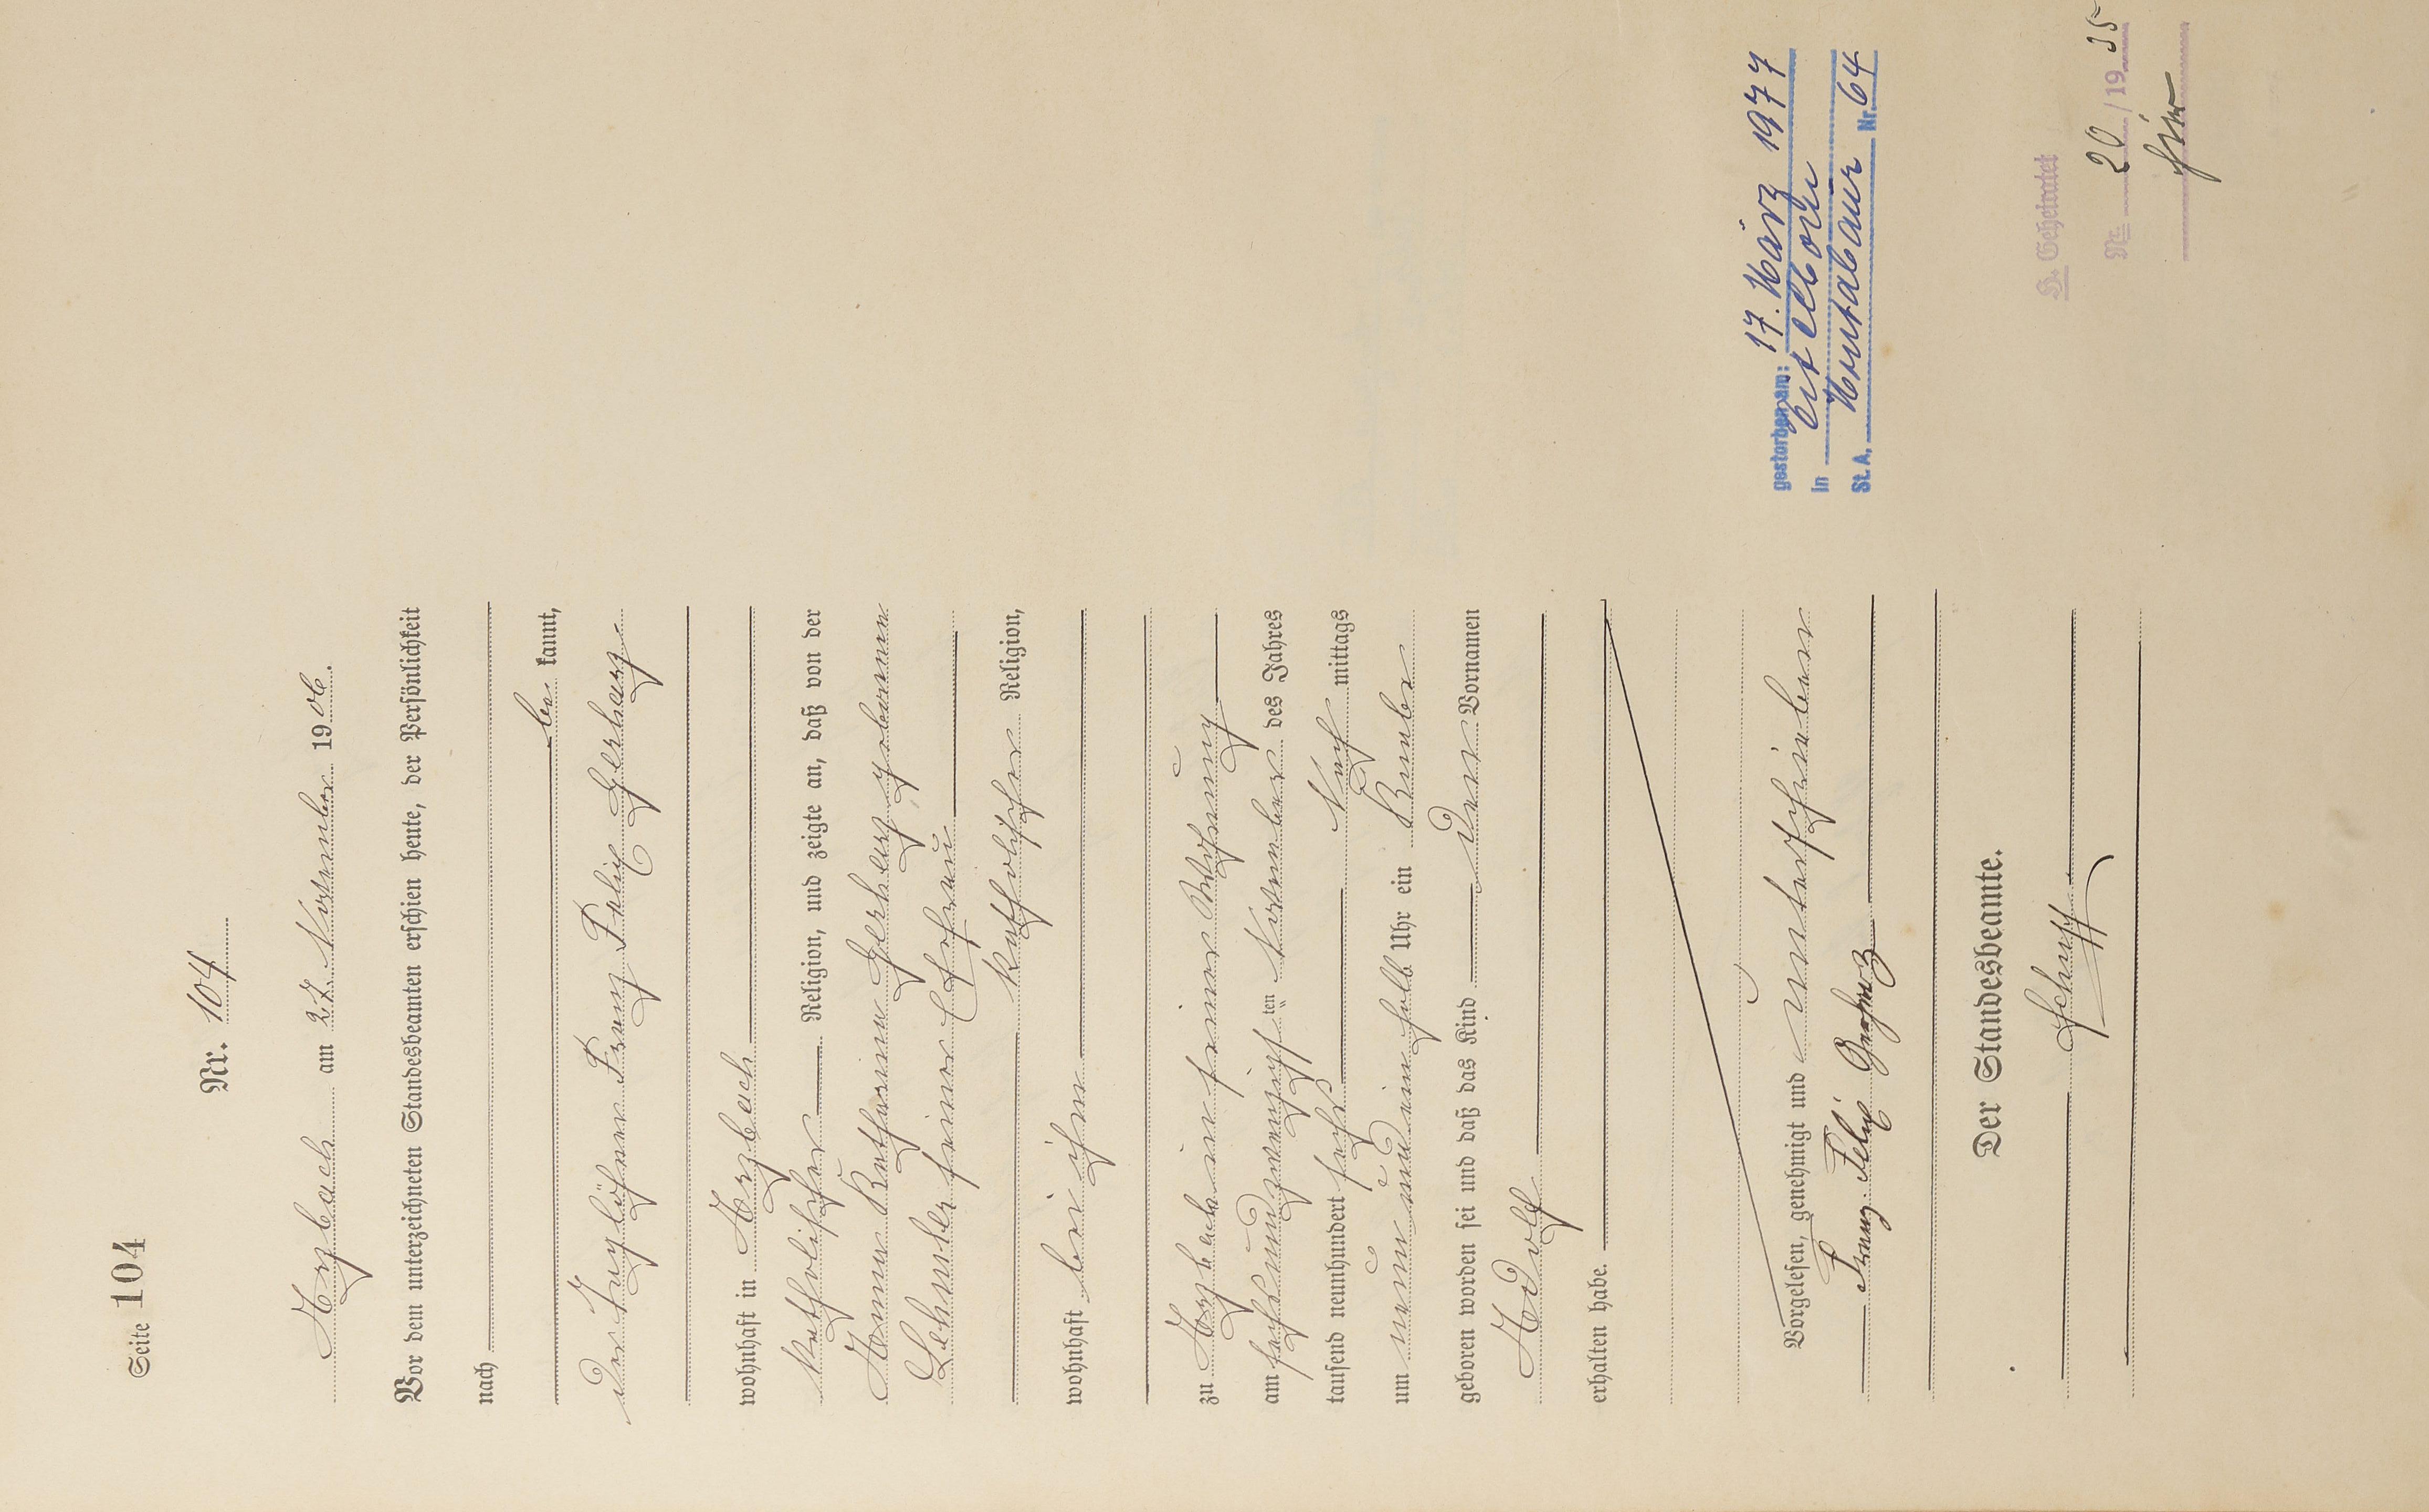 Seite 104
Nr. 104
Arzbach am 27. November 1906.
Vor dem unterzeichneten Standesbeamten erschien heute, der Persönlichkeit
nach
be kannt,
der Tagelöhner Franz Felix Gerharz
wohnhaft in Arzbach
katholischer Religion, und zeigte an, daß von der
Anna Katharina Gerharz geborenen
seiner Ehefrau
katholischer Religion,
wohnhaft bei ihm
zu Arzbach in seiner Wohnung
am sechsundzwanzigsten November des Jahres
tausend neunhundert sechs Nach mittags
um neun und ein halb Uhr ein Knabe
geboren worden sei und daß das Kind den Vornamen
Adolf
erhalten habe.
Vorgelesen, genehmigt und unterschrieben
Franz Felix Gerharz
Der Standesbeamte.
Schupp
gestorben am: 17. März 1977
in
St. A. Montabaur Nr. 64
H. Geheiratet
Nr. 20 / 19 35
hier